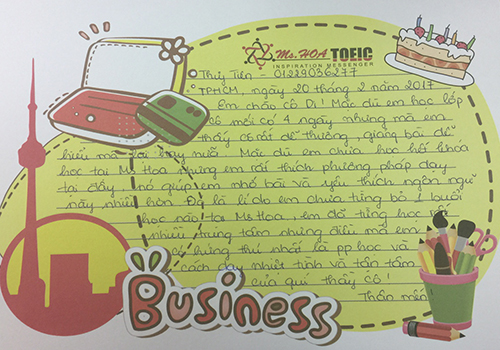 Ms. HOA TOEIC
INSPIRATION MESSENGER
Thuỷ Tiên - 01229036277
TPHCM, ngày 20 tháng 2 năm 2017
Em chào cô Di! Mặc dù em học lớp
cô mới có 4 ngày nhưng mà em
thấy cô rất dễ thương, giảng bài dễ
hiểu mà lại hay nữa. Mặc dù em chưa học hết khóa
học tại Ms Hoa nhưng em rất thích phương pháp dạy
tại đây, nó giúp em nhớ bài và yêu thích ngôn ngữ
này nhiều hơn. Đó là lí do em chưa từng bỏ 1 buổi
học nào tại Ms Hoa, em đã từng học ở
nhiều trung tâm nhưng điều mà em
có hứng thú nhất là pp học và
cách dạy nhiệt tình và tận tâm
của quí thầy cô!
Thân mến!
Business